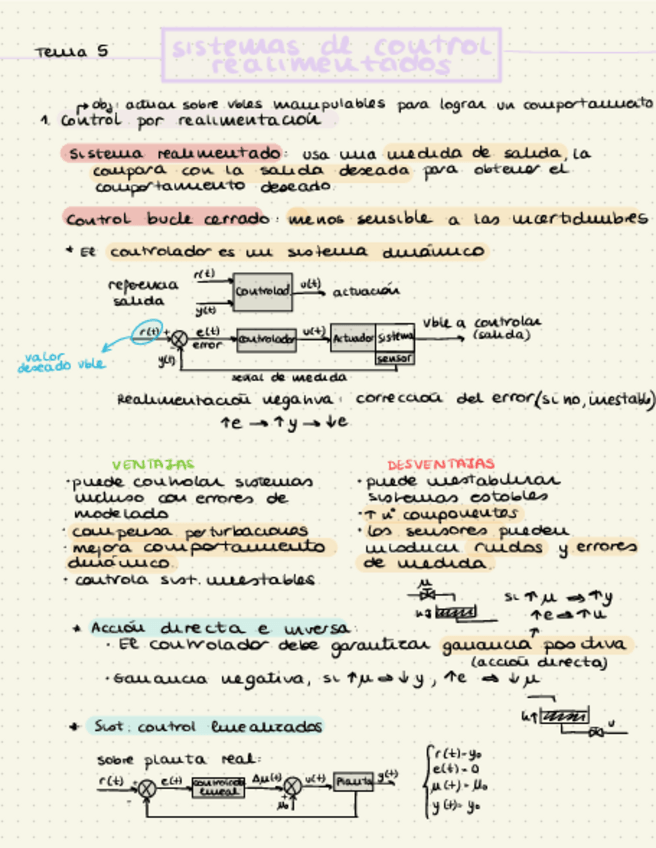 Tema 5
sistemas de control
realimentados
↱ obj: actuar sobre vbles manipulables para lograr un comportamiento
1. Control por realimentación
Sistema realimentado: usa una medida de salida, la
compara con la salida deseada para obtener el
comportamiento deseado.
Control bucle cerrado: menos sensible a las incertidumbres
* El controlador es un sistema dinámico
referencia r(t) Controlad. u(t) actuación
salida y(t)
r(t) + e(t) controlador u(t) Actuador Sistema vble a controlar
error (salida)
valor
deseado vble
y(t) sensor
señal de medida
Realimentación negativa: corrección del error (si no, inestable)
↑e → ↑y → ↓e
VENTAJAS
· puede controlar sistemas
incluso con errores de
modelado
· compensa perturbaciones
· mejora comportamiento
dinámico.
· controla sist. inestables
DESVENTAJAS
· puede inestabilizar
sistemas estables
· ↑ nº componentes
· los sensores pueden
introducir ruidos y errores
de medida.
μ
si ↑μ ⇒ ↑y
↑e ⇒ ↑u
* Acción directa e inversa:
· El controlador debe garantizar ganancia positiva
(acción directa)
· Ganancia negativa, si ↑μ ⇒ ↓y, ↑e ⇒ ↓μ
* Sist. control linealizados
sobre planta real:
r(t) e(t) controlador lineal Δμ(t) u(t) Planta y(t)
μ₀
r(t)=y₀
e(t)=0
μ(t)=μ₀
y(t)=y₀